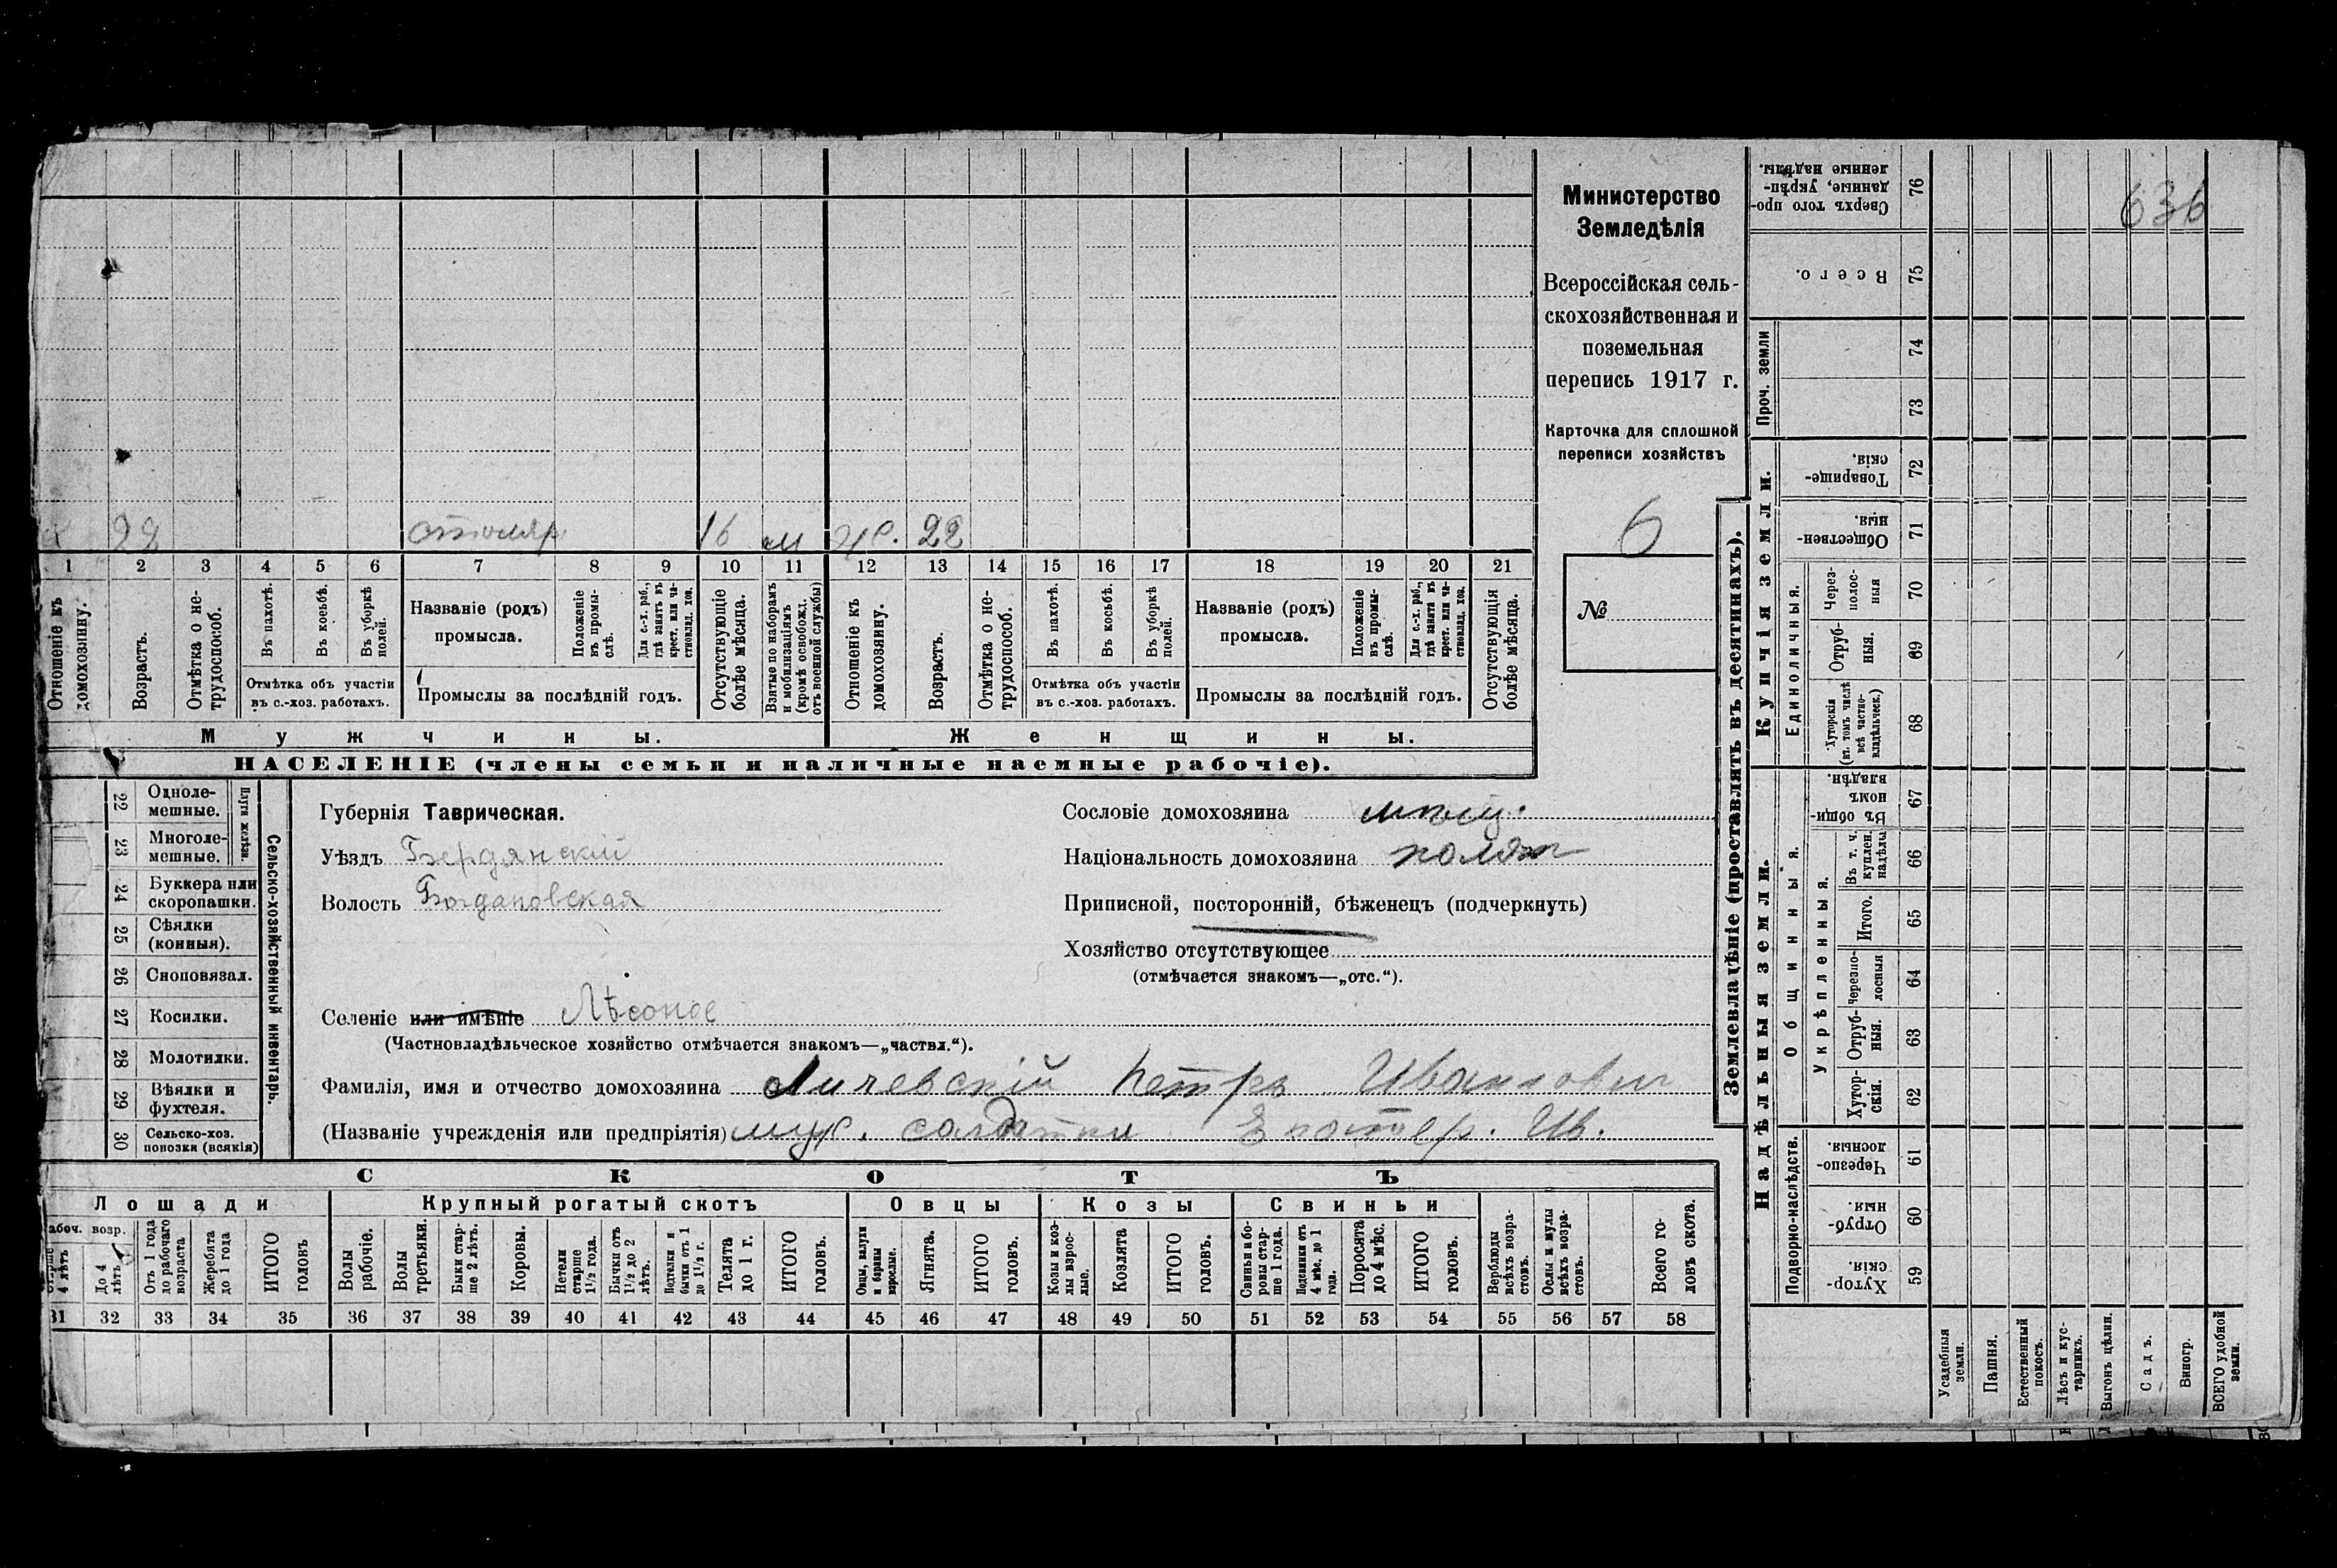 636
Министерство
Земледѣлія
Всероссійская сель-
скохозяйственная и
поземельная
перепись 1917 г.
Карточка для сплошной
переписи хозяйствъ
6
№
х 22 столяр 16 м ж. 22
1 2 3 4 5 6 7 8 9 10 11 12 13 14 15 16 17 18 19 20 21
Отношеніе къ домохозяину.
Возрастъ.
Отмѣтка о не-трудоспособ.
Въ пахотѣ.
Въ косьбѣ.
Въ уборкѣ полей.
Отмѣтка объ участіи
въ с.-хоз. работахъ.
Названіе (родъ)
промысла.
Положеніе въ промы-слѣ.
Для с.-х. раб., гдѣ занятъ въ крест. или ча-стновлад. хоз.
Промыслы за послѣдній годъ.
Отсутствующіе болѣе мѣсяца.
Взятые по наборамъ и мобилизаціямъ (кромѣ освобожд. отъ военной службы)
Отношеніе къ домохозяину.
Возрастъ.
Отмѣтка о не-трудоспособ.
Въ пахотѣ.
Въ косьбѣ.
Въ уборкѣ полей.
Отмѣтка объ участіи
въ с.-хоз. работахъ.
Названіе (родъ)
промысла.
Положеніе въ промы-слѣ.
Для с.-х. раб., гдѣ занята въ крест. или ча-стновлад. хоз.
Промыслы за послѣдній годъ.
Отсутствующія болѣе мѣсяца.
Мужчины.
Женщины.
НАСЕЛЕНІЕ (члены семьи и наличные наемные рабочіе).
22 Однолемешные.
23 Многолемешные.
Плуги желѣзн.
24 Буккера или скоропашки.
25 Сѣялки (конныя).
26 Сноповязал.
27 Косилки.
28 Молотилки.
29 Вѣялки и фухтеля.
30 Сельско-хоз. повозки (всякія)
Сельско-хозяйственный инвентарь.
Губернія Таврическая.
Уѣздъ Бердянскій
Волость Богдановская
Сословіе домохозяина мѣщ.
Національность домохозяина поляк
Приписной, посторонній, бѣженецъ (подчеркнуть)
Хозяйство отсутствующее
(отмѣчается знакомъ—„отс.“).
Селеніе или имѣніе Лѣсное
(Частновладѣльческое хозяйство отмѣчается знакомъ—„частвл.“).
Фамилія, имя и отчество домохозяина Личевскій Петръ Иванович
(Названіе учрежденія или предпріятія) муж. солдатки Екатер. Ив.
СКОТЪ
Лошади
Крупный рогатый скотъ
Овцы
Козы
Свиньи
абоч. возр.
старше 4 лѣтъ
До 4 лѣтъ
Отъ 1 года до рабочаго возраста
Жеребята до 1 года
ИТОГО головъ
Волы рабочіе.
Волы третьяки.
Быки стар-ше 2 лѣтъ.
Коровы.
Нетели старше 1½ года.
Бычки отъ 1½ до 2 лѣтъ.
Подтелки и бычки отъ 1 до 1½ г.
Телята до 1 г.
ИТОГО головъ.
Овцы, валухи и бараны взрослые.
Ягнята.
ИТОГО головъ.
Козы и коз-лы взрос-лые.
Козлята
ИТОГО головъ.
Свиньи и бо-ровы стар-ше 1 года.
Подсвинки отъ 4 мѣс. до 1 года.
Поросята до 4 мѣс.
ИТОГО головъ.
Верблюды всѣхъ возра-стовъ.
Ослы и мулы всѣхъ возра-стовъ.
Всего го-ловъ скота.
31 32 33 34 35 36 37 38 39 40 41 42 43 44 45 46 47 48 49 50 51 52 53 54 55 56 57 58
Землевладѣніе (проставлять въ десятинахъ).
Надѣльныя земли.
Купчія земли.
Проч. земли
Подворно-наслѣдств.
Общинныя.
Укрѣпленныя.
Единоличныя.
Сверхъ того про-данные, укрѣп-ленные надѣлы. 76
Всего. 75
74
73
Товарище-скія. 72
Обществен-ныя. 71
Через-полос-ныя 70
Отруб-ныя. 69
Хуторскія (въ томъ числѣ всѣ частно-владѣльческ.) 68
Въ общи-номъ владѣн. 67
Въ т. ч. куплен. надѣлы 66
Итого. 65
Черезпо-лосныя 64
Отруб-ныя. 63
Хутор-скія. 62
Черезпо-лосныя. 61
Отруб-ныя. 60
Хутор-скія. 59
Усадебныя земли.
Пашня.
Естественный покосъ.
Лѣсъ и кус-тарникъ.
Выгонъ цѣлин.
Садъ.
Виногр.
ВСЕГО удобной земли.